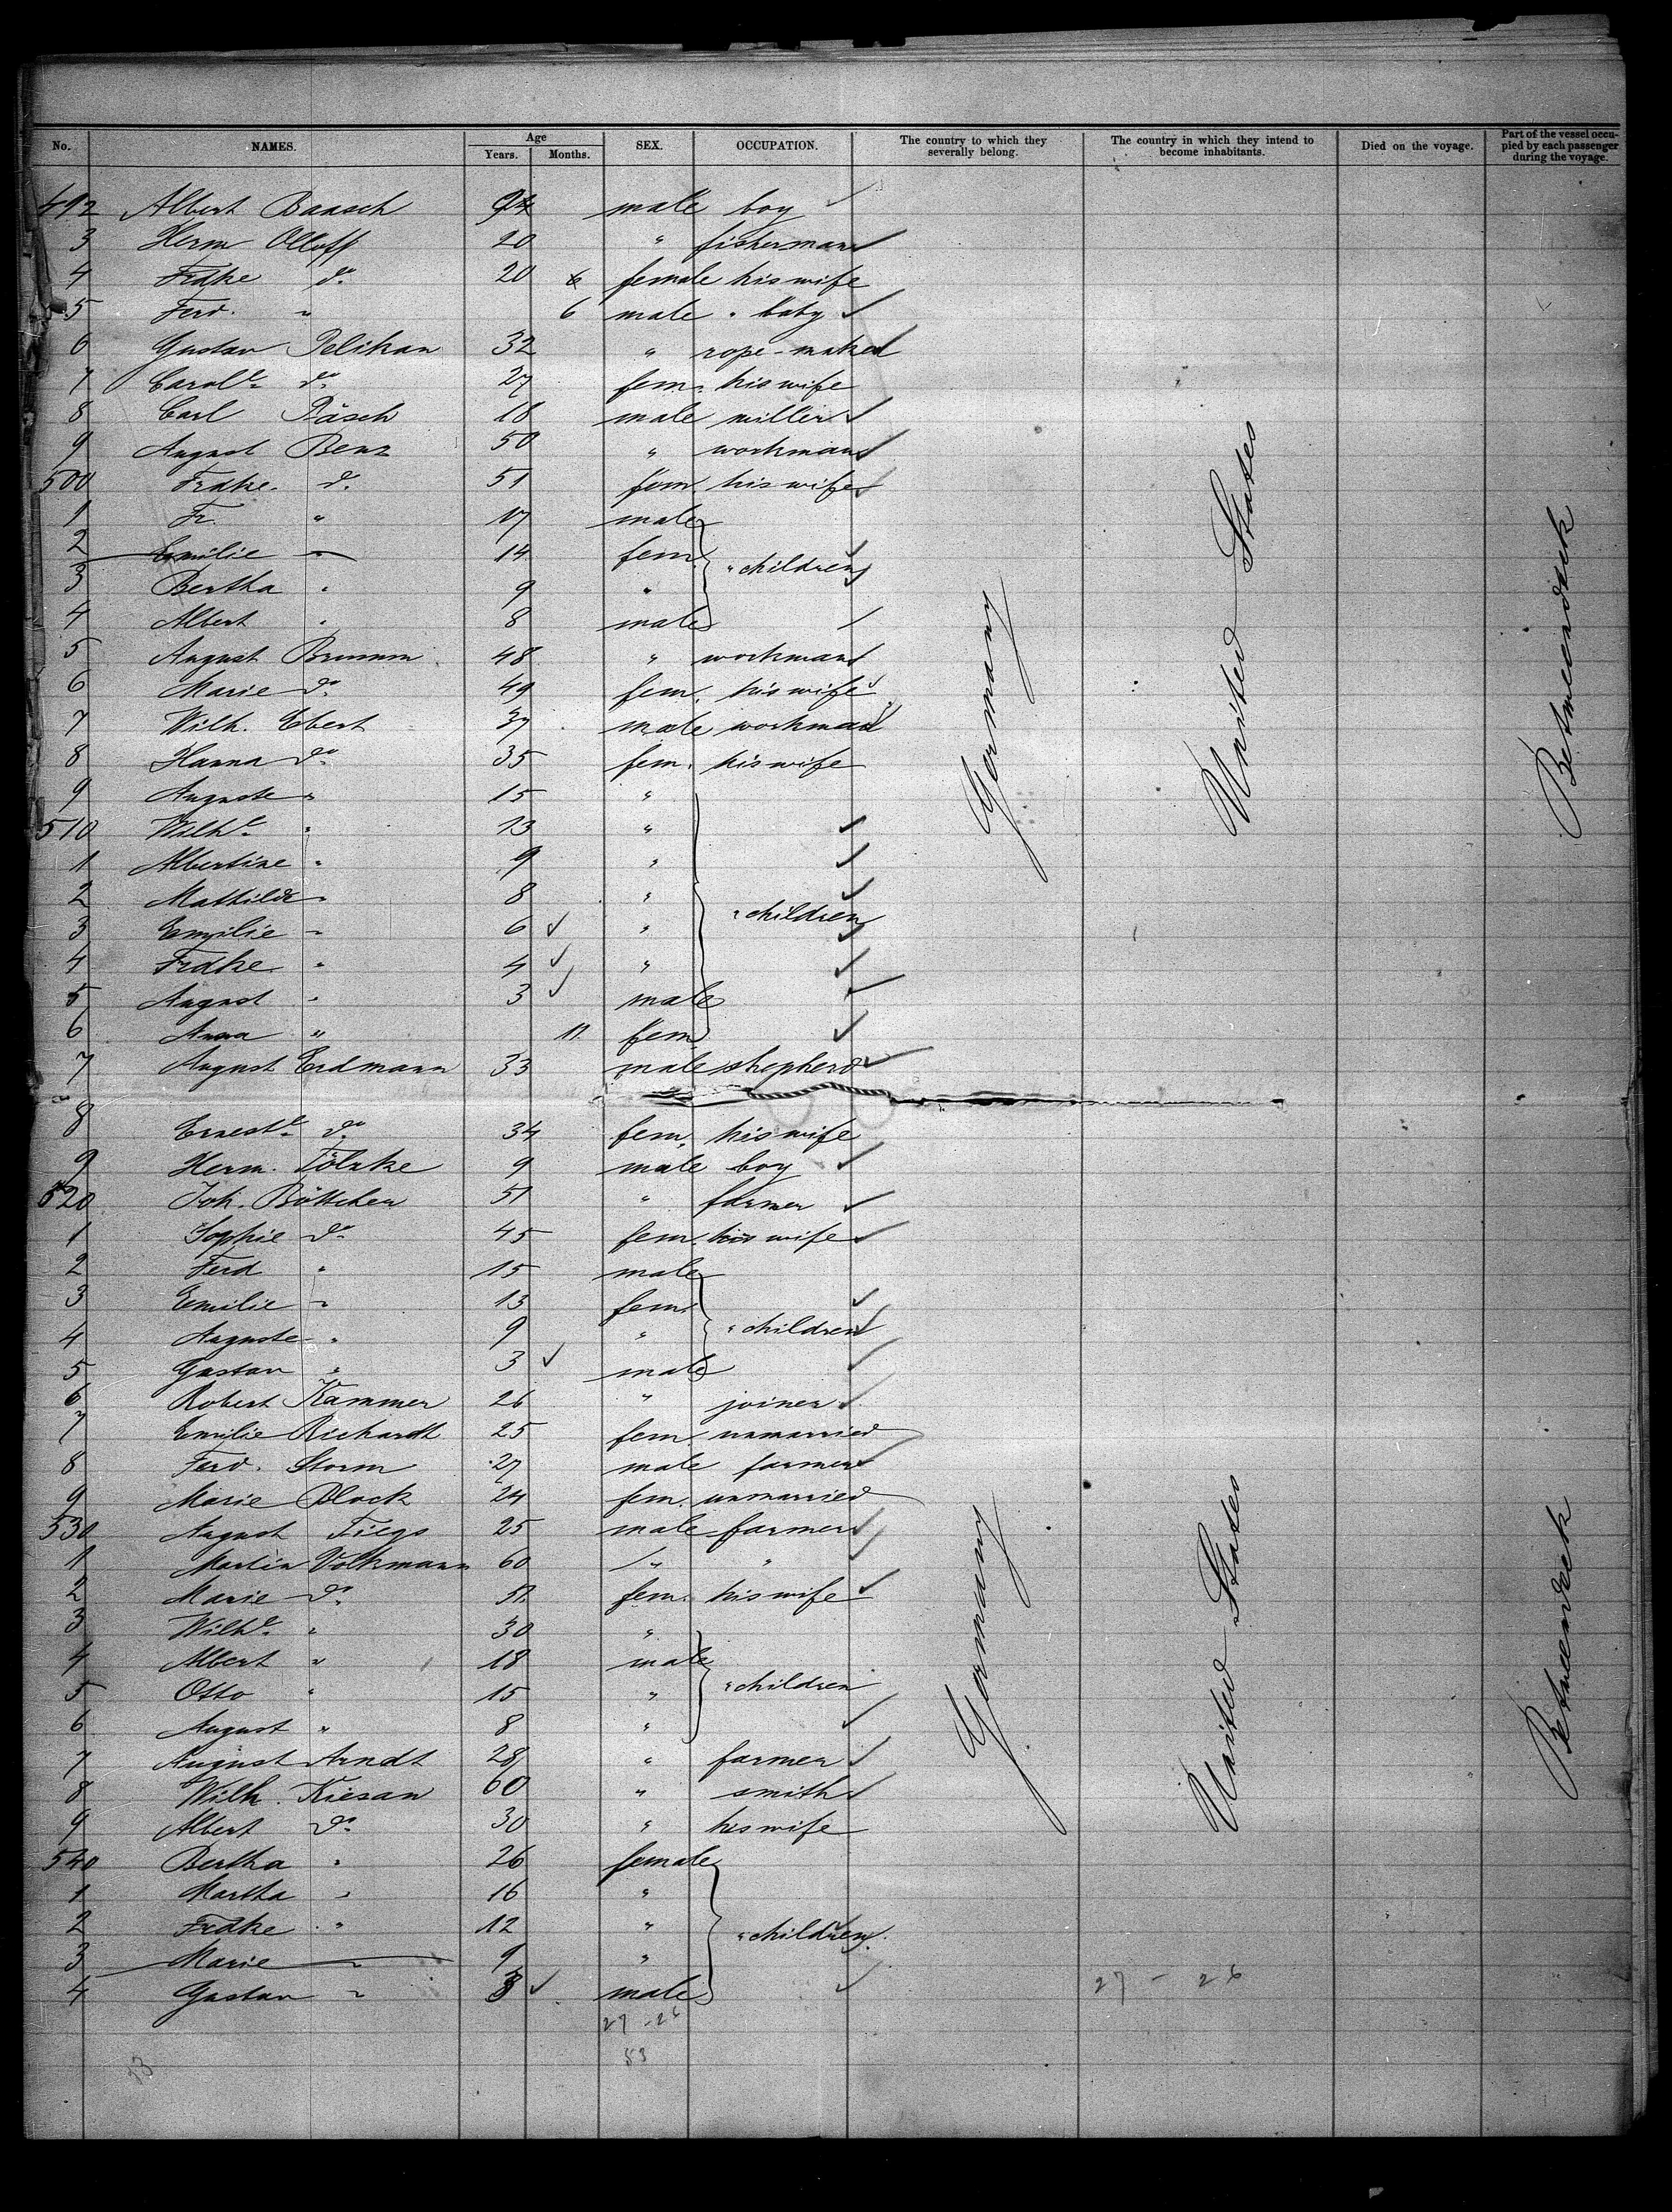 No. NAMES. Age Years. Months. SEX. OCCUPATION. The country to which they severally belong. The country in which they intend to become inhabitants. Died on the voyage. Part of the vessel occupied by each passenger during the voyage.
492 Albert Baasch male boy
3 Herm Olloff 20 " fisherman
4 Frdke do. 20 female his wife
5 Ferd. " 6 male " baby
6 Gustav Pelikan 32 " rope-maker
7 Carole. do. 27 fem. his wife
8 Carl Räsch 18 male miller
9 August Benz 50 " workman
500 Frdke. do. 51 fem. his wife
1 Fr. " 17 male
2 Emilie " 14 fem
" children
3 Bertha " 9 "
4 Albert " 8 male
5 August Brumm 48 " workman
6 Marie do. 49 fem. his wife
7 Wilh. Ebert 37 male workman
8 Hanna do. 35 fem. his wife
9 Auguste " 15 "
510 Wilhe. " 13 "
1 Albertine " 9 "
2 Mathilde " 8 "
" children
3 Emilie " 6 "
4 Frdke " 4 "
5 August " 3 male
6 Anna " 11 fem.
7 August Erdmann 33 male shepherd
Germany United States Betweendeck
8 Erneste. do. 34 fem. his wife
9 Herm. Tölzke 9 male boy
520 Joh. Böttcher 51 " farmer
1 Sophie do. 45 fem. his wife
2 Ferd " 15 male
3 Emilie " 13 fem.
4 Auguste " 9 " " children
5 Gustav " 3 male
6 Robert Kammer 26 " joiner
7 Emilie Richardt 25 fem. unmarried
8 Ferd. Storm 27 male farmer
9 Marie Block 24 fem. unmarried
530 August Tiegs 25 male farmer
1 Martin Volkmann 60 " "
2 Marie do. 51 fem. his wife
3 Wilhe. " 30 "
4 Albert " 18 male
5 Otto " 15 " " children
6 August " 8 "
7 August Arndt 28 " farmer
8 Wilh. Kiesan 60 " smith
9 Albert do. 30 " his wife
540 Bertha " 26 female
1 Martha " 16 "
2 Frdke " 12 "
" children
3 Marie " 9 "
4 Gustav " 3 male
Germany United States Betweendeck
27 - 26
27 - 26
53